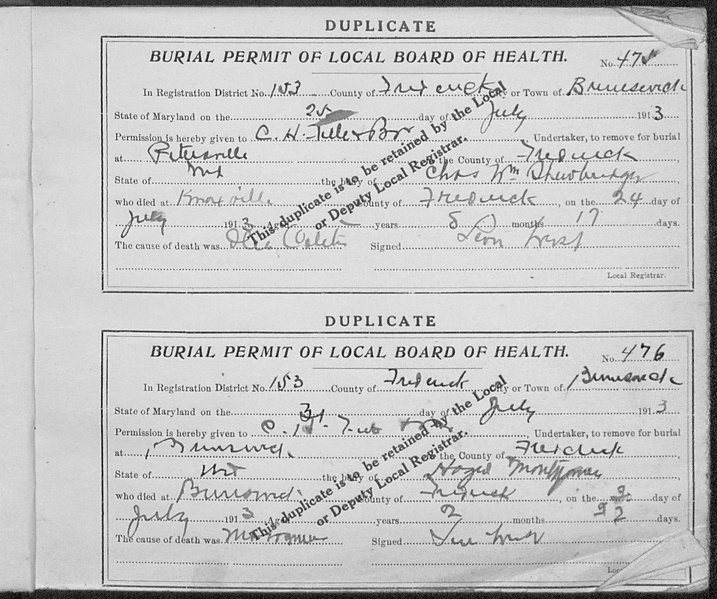 DUPLICATE
BURIAL PERMIT OF LOCAL BOARD OF HEALTH.
No. 475
In Registration District No. 153 County of Frederick City or Town of Brunswick
State of Maryland on the 25 day of July 1913
Permission is hereby given to C. H. Undertaker, to remove for burial
at Petersville the County of Frederick
State of Md the body of Chas Wm Shewbridge
who died at Knoxville County of Frederick, on the 24 day of
July 1913 Aged years 8 months 17 days.
The cause of death was Colitis Signed
Local Registrar.
This duplicate is to be retained by the Local
or Deputy Local Registrar.
DUPLICATE
BURIAL PERMIT OF LOCAL BOARD OF HEALTH.
No. 476
In Registration District No. 153 County of Frederick City or Town of Brunswick
State of Maryland on the day of July 1913
Permission is hereby given to C. Undertaker, to remove for burial
at Brunswick the County of Frederick
State of Md the body of Hazel Montgomery
who died at Brunswick County of Frederick, on the day of
July 1913 Aged years 2 months 22 days.
The cause of death was Signed
This duplicate is to be retained by the Local
or Deputy Local Registrar.